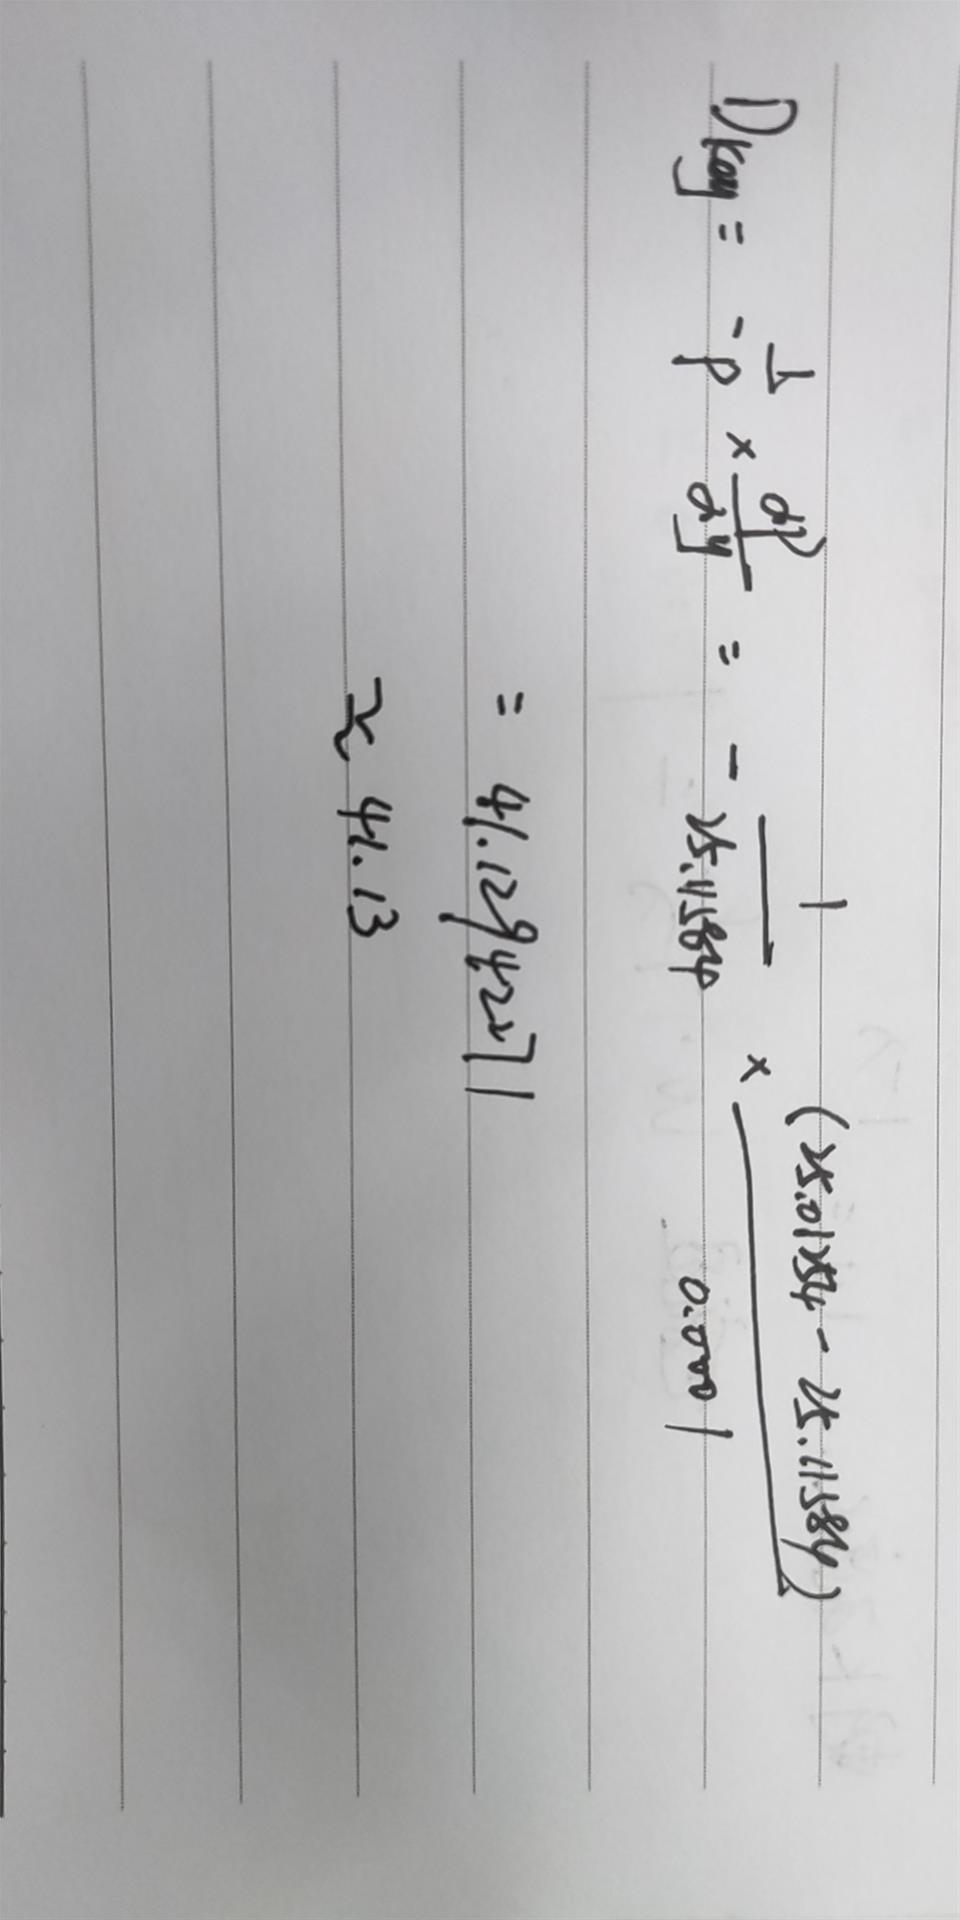 Dkey = - 1/P × dP/dy = - 1/25.11584 × (25.01254 - 25.11584)/0.0001
= 41.1294271
≈ 41.13